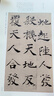 蛇起陸人發
殺機天地反
覆天人合發